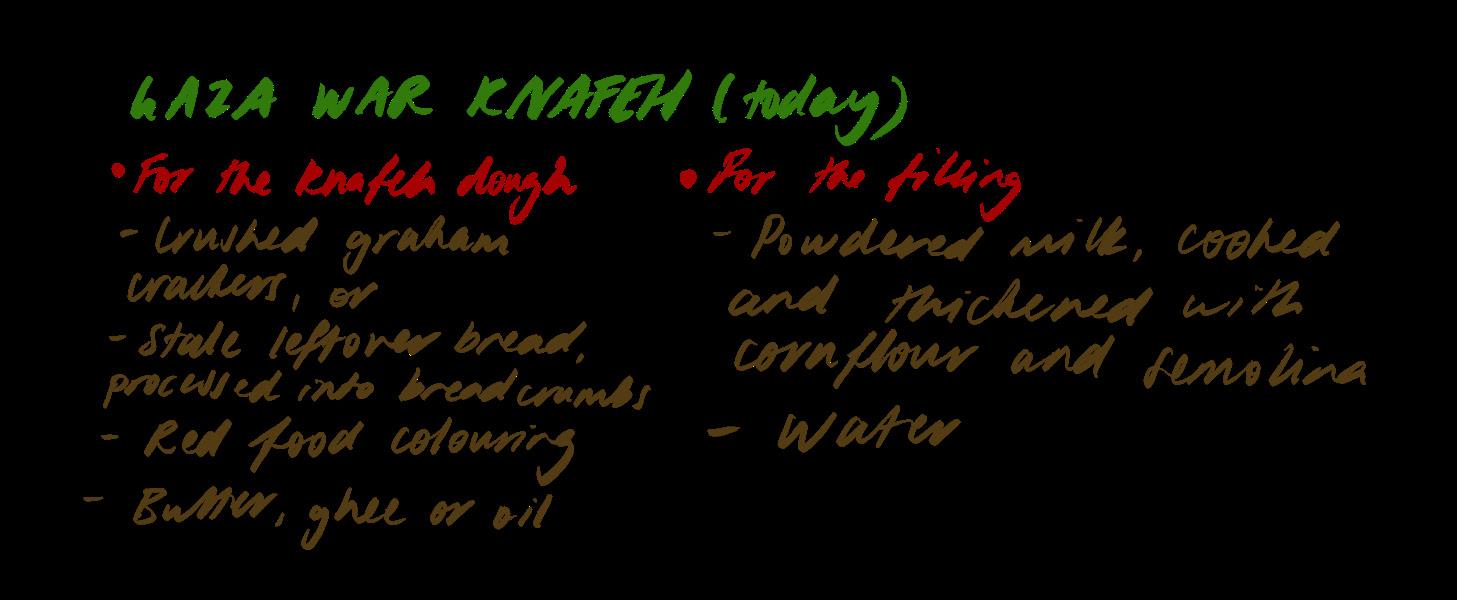 GAZA WAR KNAFEH (today)
• For the knafeh dough
- Crushed graham
crackers, or
- Stale leftover bread,
processed into breadcrumbs
- Red food colouring
- Butter, ghee or oil
• For the filling
- Powdered milk, cooked
and thickened with
cornflour and semolina
- Water